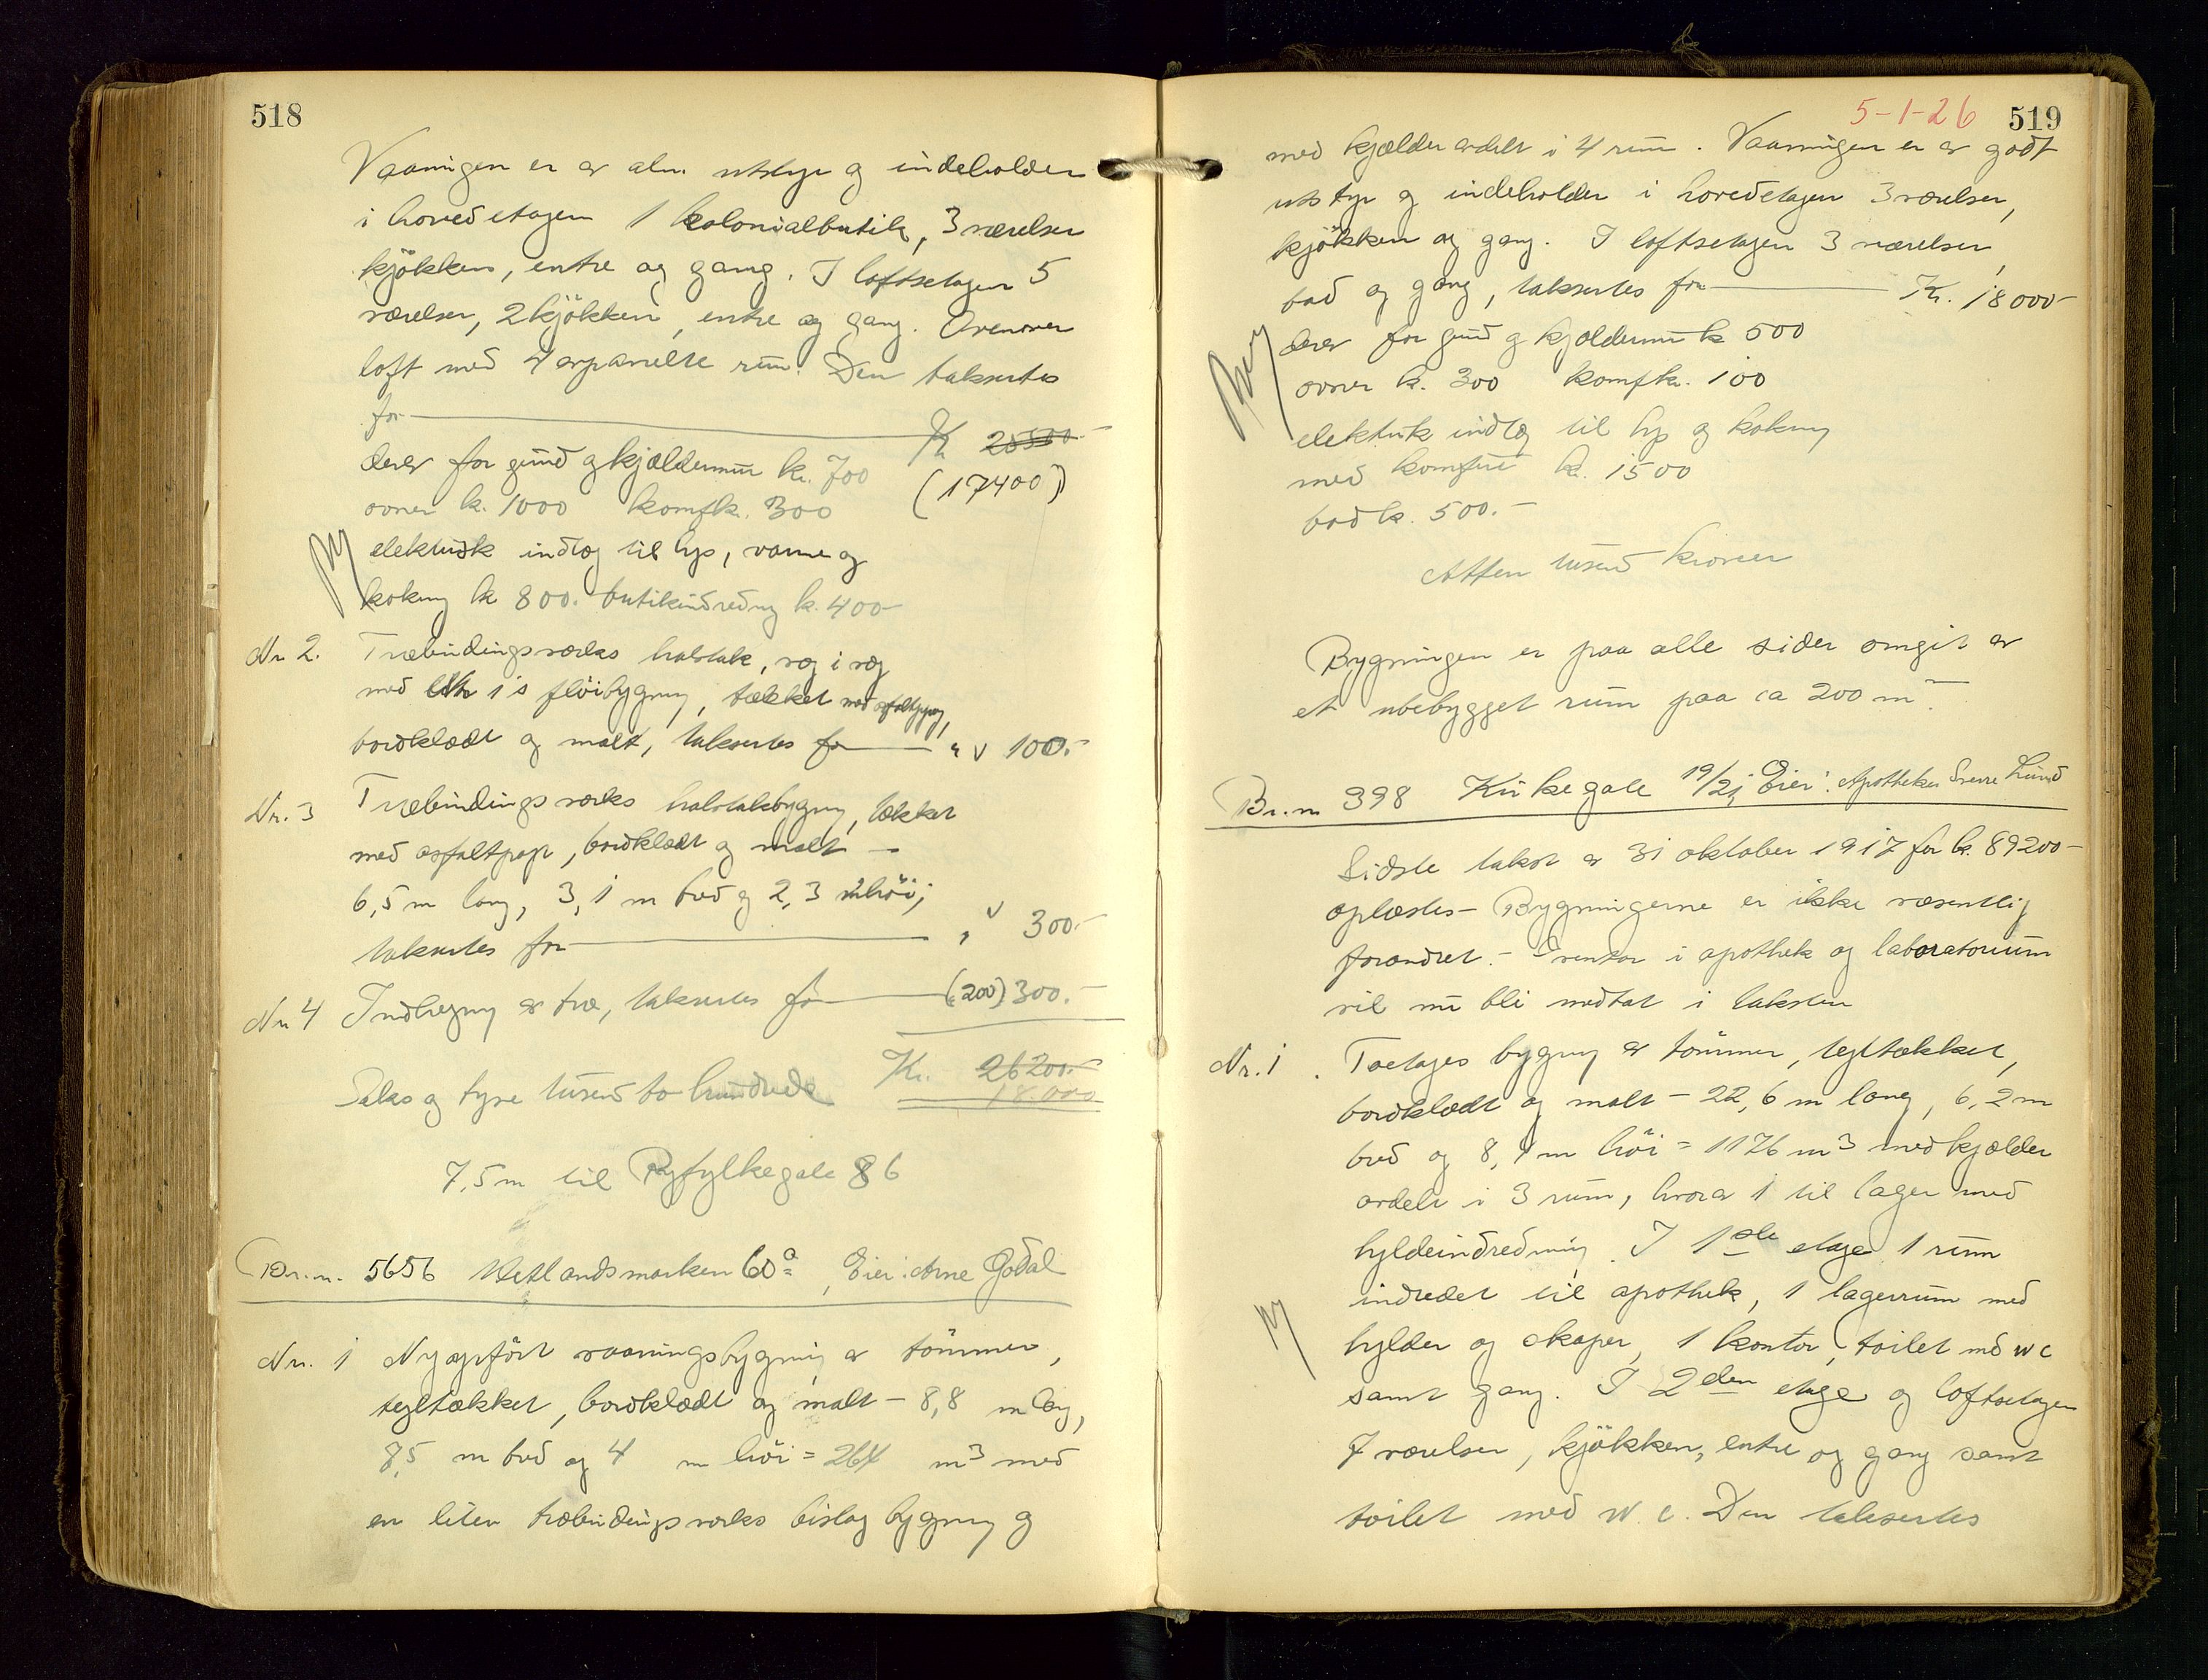 518
Vaaningen er av alm. utstyr og indeholder
i hovedetagen 1 kolonialbutik, 3 værelser
kjökken, entre og gang. I loftsetagen 5
værelser, 2 kjökken, entre og gang. Ovenover
loft med 4 avpanelte rum. Den taksertes
for Kr 25500.-
derav for grund og kjældermur kr. 700 (17400)
ovner kr. 1000 komfkr. 300
elektrisk indlæg til lys, varme og
kokning kr 800. butikindredning kr. 400-
Nr 2. Træbindingsverks halvtak, væg i væg
med 1's flöibygning, tækket med asfaltpap,
bordklædt og malt, taksertes for " 100.-
Nr. 3 Træbindingsverks halvtaksbygning, tækket
med asfaltpap, bordklædt og malt -
6,5 m lang, 3,1 m bred og 2,3 m höi;
taksertes for " 300.-
Nr 4 Indhegning av træ, taksertes for (200) 300.-
Kr. 26200.-
Seks og tyve tusend to hundrede 18.000
7,5 m til Ryfylkegate 86
Br.nr. 5656 Hetlandsmarken 60a, Eier: Arne Godal
Nr. 1 Nyopfört vaaningsbygning av tömmer,
tegltækket, bordklædt og malt - 8,8 m lang,
8,5 m bred og 4 m höi = 264 m3 med
en liten træbindingsverks bislag bygning og
5-1-26 519
med kjælder avdelt i 4 rum. Vaaningen er av godt
utstyr og indeholder i hovedetagen 3 værelser,
kjökken og gang. I loftsetagen 3 værelser,
bad og gang, taksertes for Kr. 18000-
derav for grund og kjældermur kr 500
ovner kr. 300 komfkr. 100
elektrisk indlæg til lys og kokning
med komfur kr. 1500
bad kr. 500.-
Atten tusend kroner
Bygningen er paa alle sider omgit av
et ubebygget rum paa ca 200 m2.
Br.nr 398 Kirkegate 19/21 Eier: Apotheker Sverre Lund
Sidste takst av 31 oktober 1917 for kr. 89200-
oplæstes- Bygningerne er ikke væsentlig
forandret.- Inventar i apothek og laboratorium
vil nu bli medtat i taksten
Nr. 1 Toetages bygning av tömmer, tegltækket,
bordklædt og malt - 22,6 m lang, 6,2 m
bred og 8,4 m höi = 1176 m3 med kjælder
avdelt i 3 rum, hvorav 1 til lager med
hyldeindredning. I 1ste etage 1 rum
indredet til apothek, 1 lagerrum med
hylder og skaper, 1 kontor, toilet med wc
samt gang. I 2den etage og loftsetagen
7 værelser, kjökken, entre og gang samt
toilet med w.c. Den taksertes